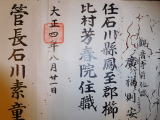 廣瀬則安
任石川縣鳳至郡櫛
比村芳春院住職
大正四年八月廿一日
管長石川素童